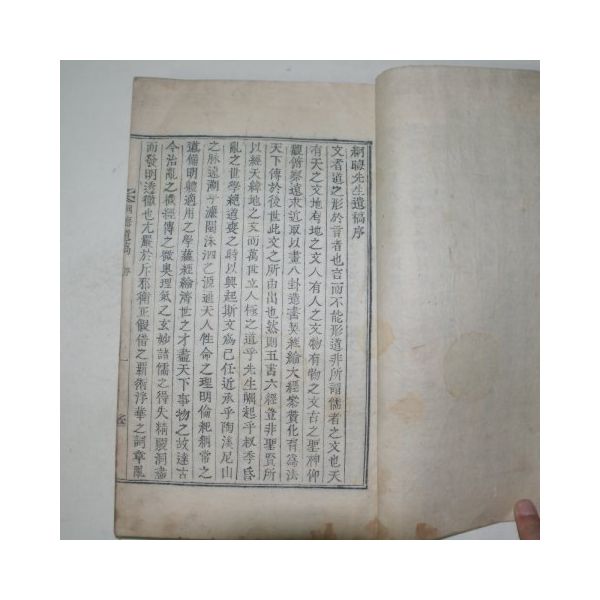 絅晦先生遺稿序
文者道之形於言者也言而不能形道非所謂儒者之文也天
有天之文地有地之文人有人之文物有物之文古之聖神仰
觀俯察遠求近取以畫八卦造書契經綸大經參贊化育爲法
天下傳於後世此文之所由出也然則五常六經豈非聖賢所
以經天緯地之文而萬世立人極之道乎先生崛起乎叔季昏
亂之世學絕道喪之時以興起斯文爲己任近承乎陶溪尼山
之脉遠溯乎濂閩洙泗之源通天人性命之理明倫紀綱常之
道備明體適用之學蘊經綸濟世之才盡天下事物之故達古
今治亂之機經傳之微奧理氣之玄妙諸儒之得失精覈洞盡
而發明透徹也尤嚴於斥邪衛正假借之覇術浮華之詞章亂